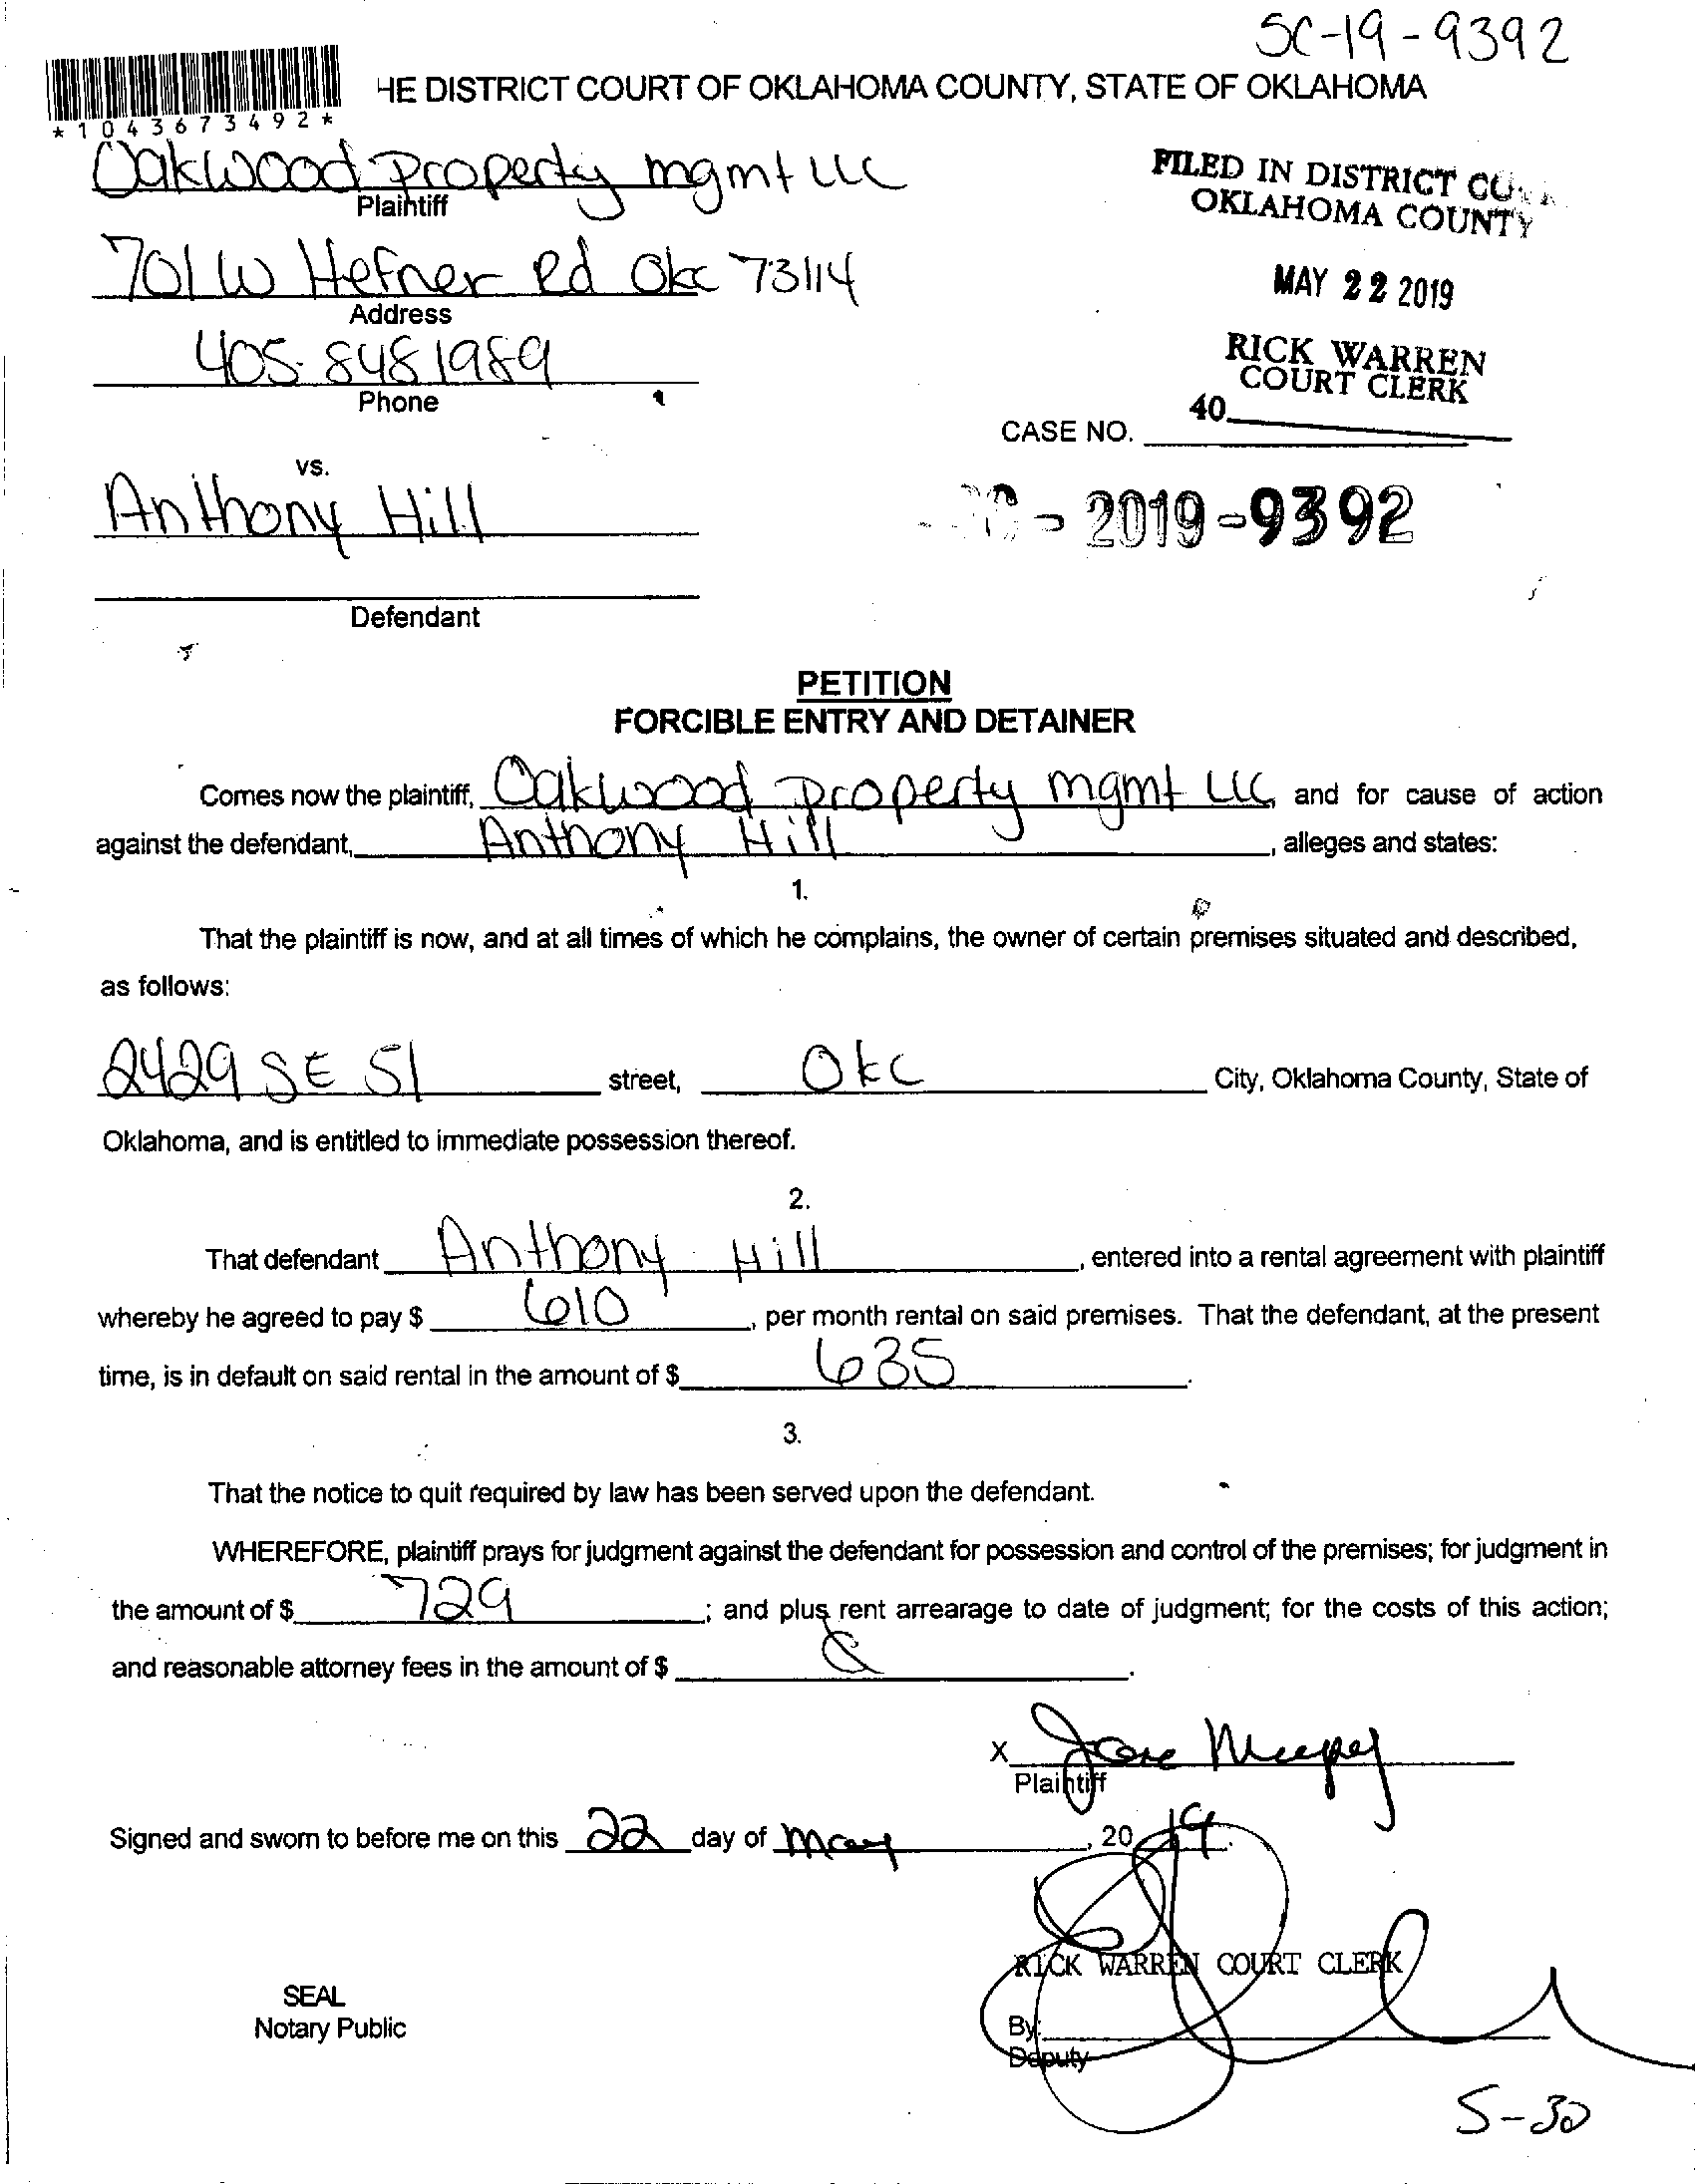 SC-19-9392
HE DISTRICT COURT OF OKLAHOMA COUNTY, STATE OF OKLAHOMA
*1043673492*
Oakwood Property mgmt LLC
Plaintiff
FILED IN DISTRICT
OKLAHOMA COUNTY
701 W Hefner Rd Okc 73114
Address
MAY 22 2019
405-848 1989
Phone
RICK WARREN
COURT CLERK
40
CASE NO.
vs.
Anthony Hill
- 2019-9392
Defendant
PETITION
FORCIBLE ENTRY AND DETAINER
Comes now the plaintiff, Oakwood Property mgmt LLC, and for cause of action
against the defendant, Anthony Hill, alleges and states:
1.
That the plaintiff is now, and at all times of which he complains, the owner of certain premises situated and described,
as follows:
2429 SE 51 street, Okc City, Oklahoma County, State of
Oklahoma, and is entitled to immediate possession thereof.
2.
That defendant Anthony Hill, entered into a rental agreement with plaintiff
whereby he agreed to pay $ 610, per month rental on said premises. That the defendant, at the present
time, is in default on said rental in the amount of $ 635.
3.
That the notice to quit required by law has been served upon the defendant.
WHEREFORE, plaintiff prays for judgment against the defendant for possession and control of the premises; for judgment in
the amount of $ 729; and plus rent arrearage to date of judgment; for the costs of this action;
and reasonable attorney fees in the amount of $ .
X
Plaintiff
Signed and sworn to before me on this 22 day of May, 2019.
RICK WARREN COURT CLERK
SEAL
Notary Public
By:
Deputy
5-30